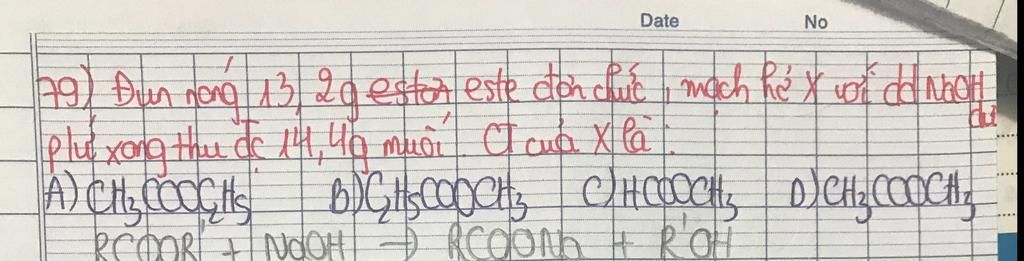 Date No
79) Đun nóng 13,2g este đơn chức, mạch hở X với dd NaOH dư
pứ xong thu đc 14,4g muối. CT của X là:
A) CH3COOC2H5 B) C2H5COOCH3 C) HCOOCH3 D) CH3COOCH3
RCOOR' + NaOH → RCOONa + R'OH